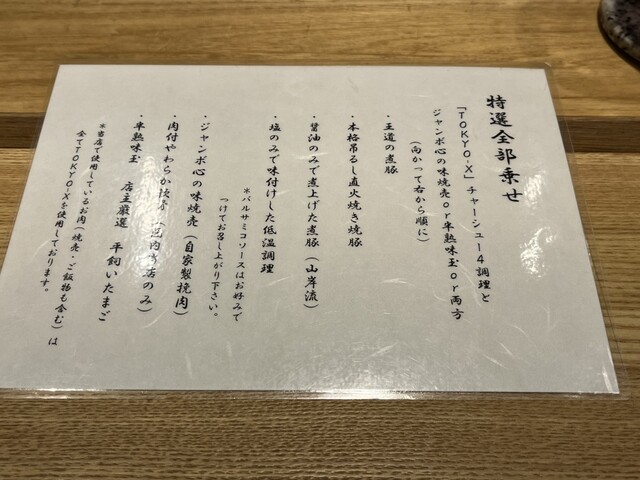 特選全部乗せ
「TOKYO-X」チャーシュー4調理と
ジャンボ心の味焼売or半熟味玉or両方
(向かって右から順に)
・王道の煮豚
・本格吊るし直火焼き焼豚
・醤油のみで煮上げた煮豚(山岸流)
・塩のみで味付けした低温調理
*バルサミコソースはお好みで
つけてお召し上がり下さい。
・ジャンボ心の味焼売(自家製挽肉)
・肉付やわらか
店のみ)
・半熟味玉 店主厳選 平飼いたまご
*当店で使用しているお肉(焼売・ご飯物も含む)は
全てTOKYO-Xを使用しております。